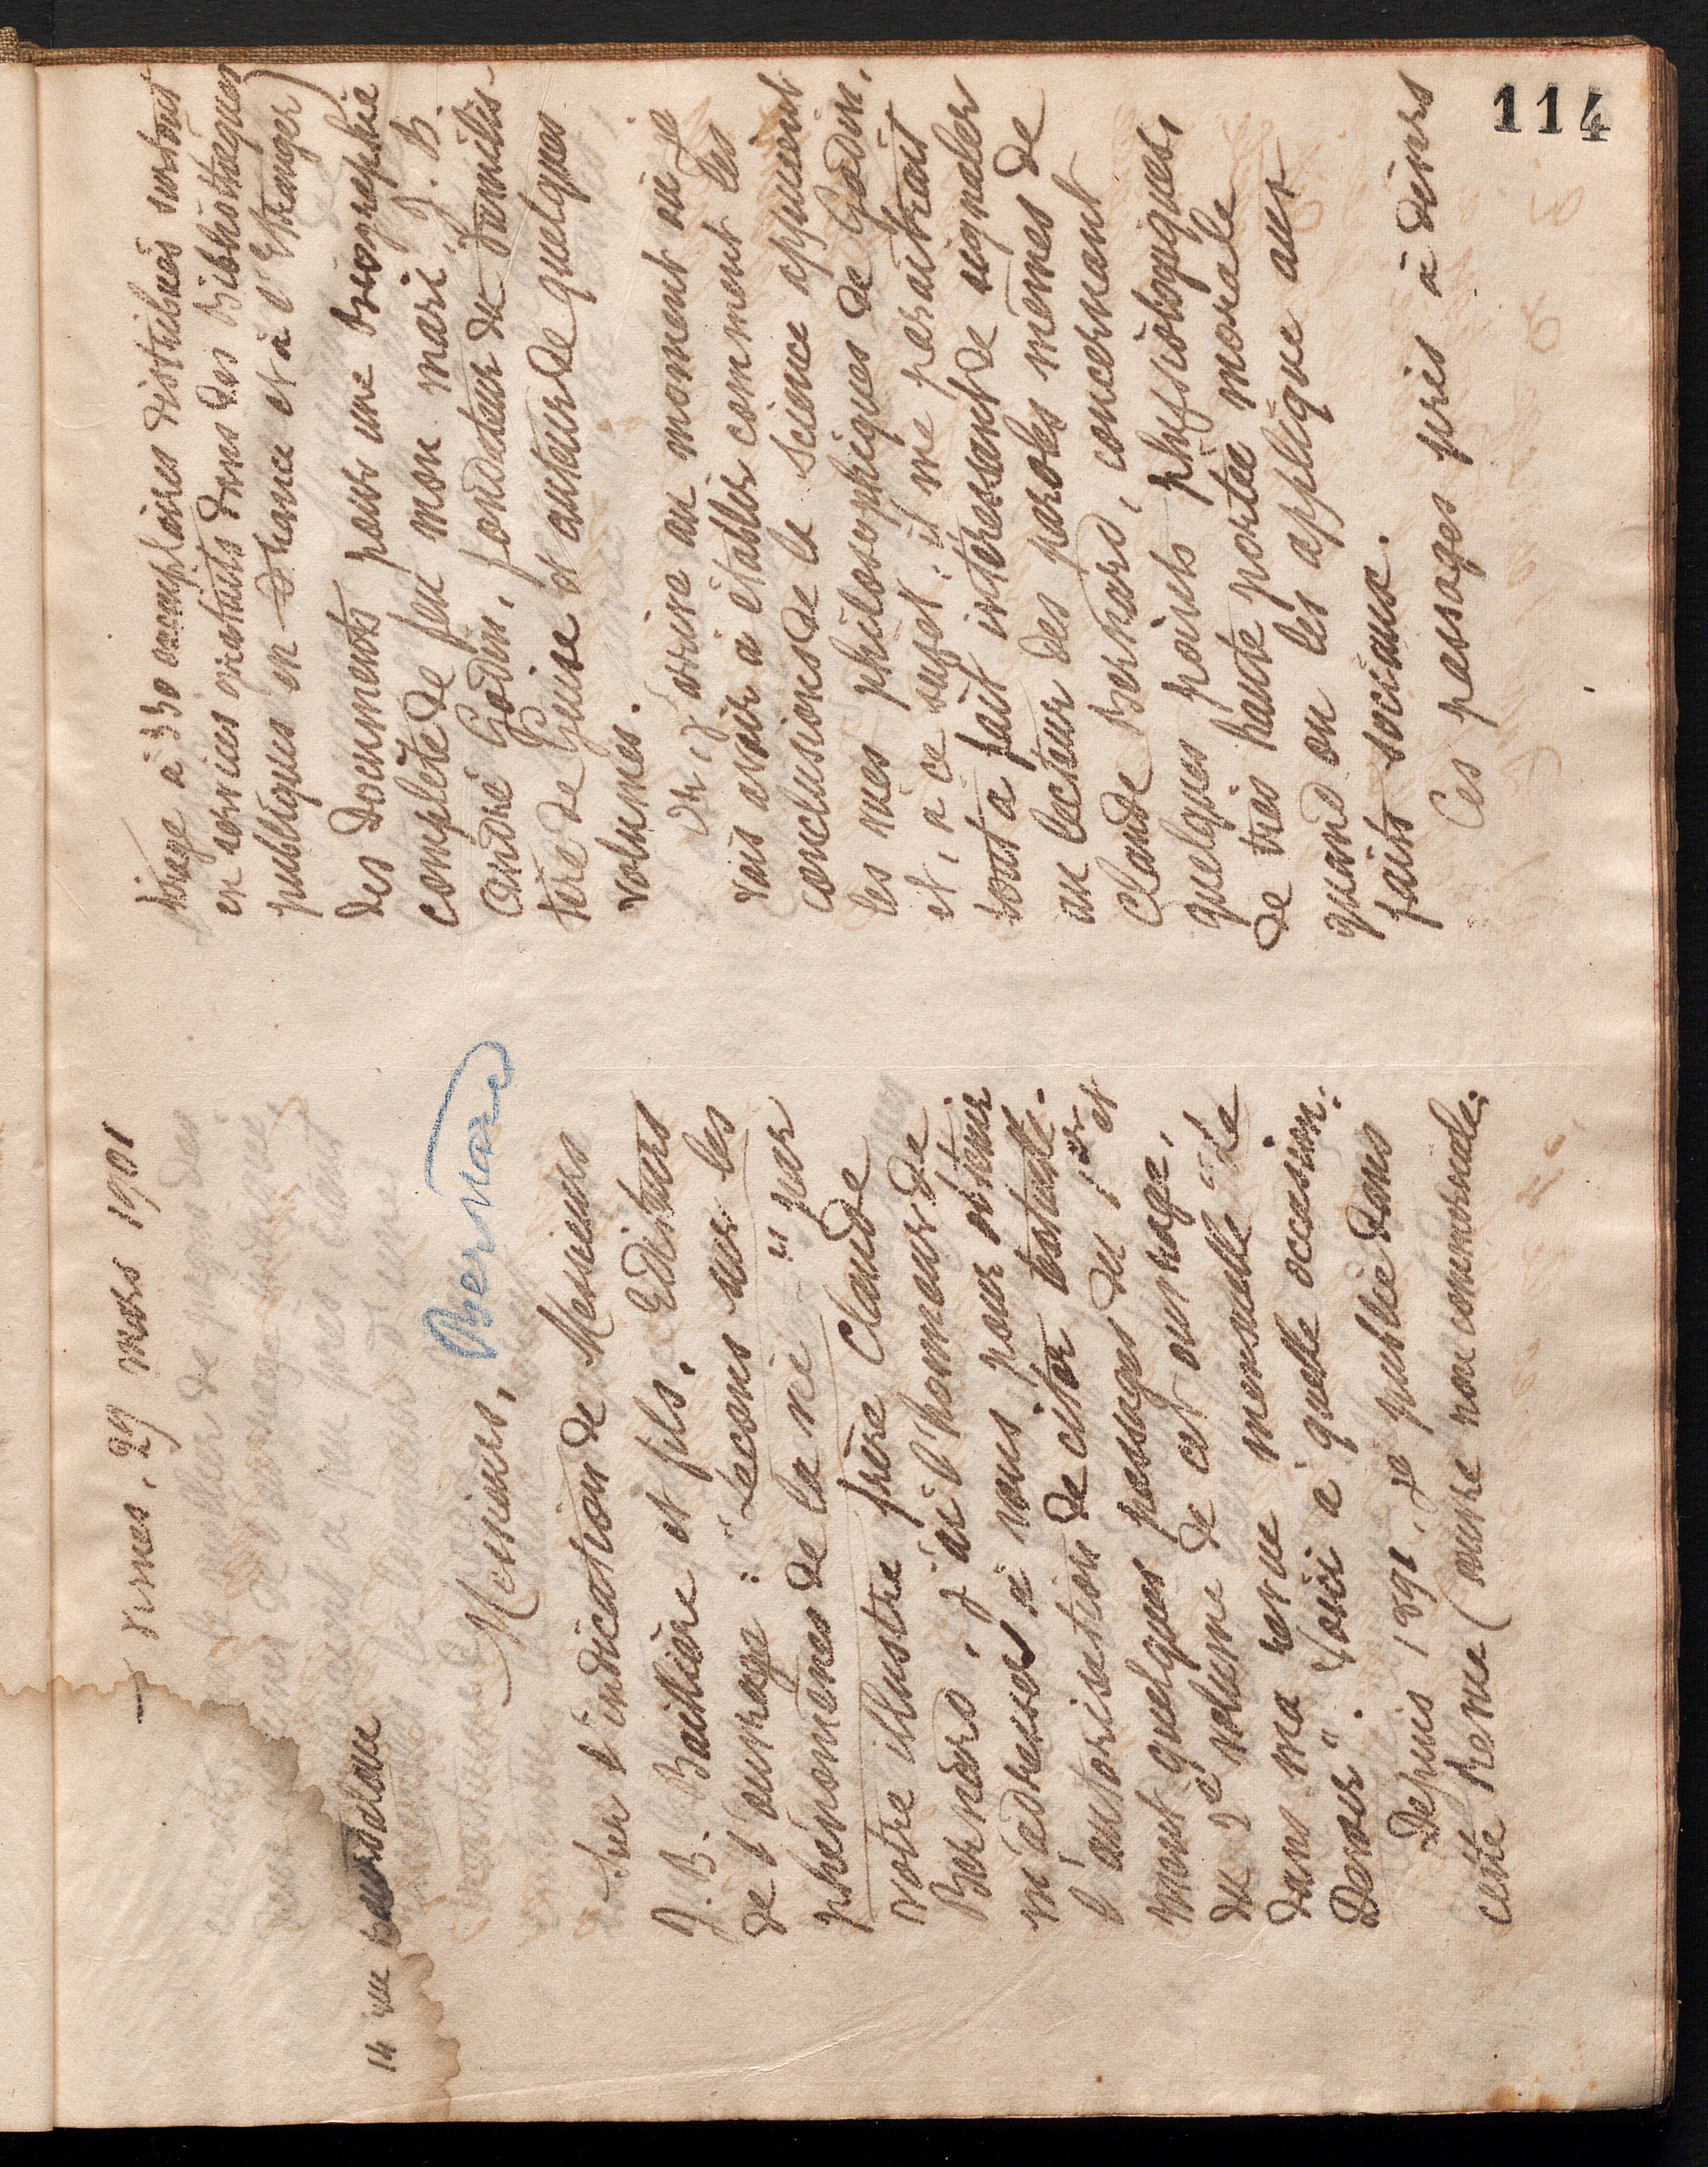 114
Nîmes, 29 mars 1901
14 rue Bourdaloue
Messieurs, Bernard
Sur l'indication de Messieurs
J. B. Baillière et fils. Editeurs
de l'ouvrage : "Leçons sur les
phénomènes de la vie - " par
votre illustre frère Claude
Bernard, j'ai l'honneur de
m'adresser à vous pour obtenir
l'autorisation de citer
quelques passages du 1er et
du 2e volume de cet ouvrage,
dans ma revue mensuelle "Le
Devoir". Voici à quelle occasion :
Depuis 1891, je publie dans
cette Revue (œuvre non commerciale;
tirage à 330 exemplaires distribués surtout
en services gratuits dans des Bibliothèques
publiques en France et à l'Etranger)
des documents pour une biographie
complète de feu mon mari J. B.
André Godin, fondateur du Familis-
tère de Guise et auteur de quelques
volumes.
Or, j'arrive au moment où je
vais avoir à établir comment les
conclusions de la science appuient
les vues philosophiques de Godin,
et, à ce sujet, il me paraîtrait
tout à fait intéressant de signaler
au lecteur des paroles mêmes de
Claude Bernard, concernant
quelques points physiologiques,
de très haute portée morale
quand on les applique aux
faits sociaux.
Ces passages pris à divers